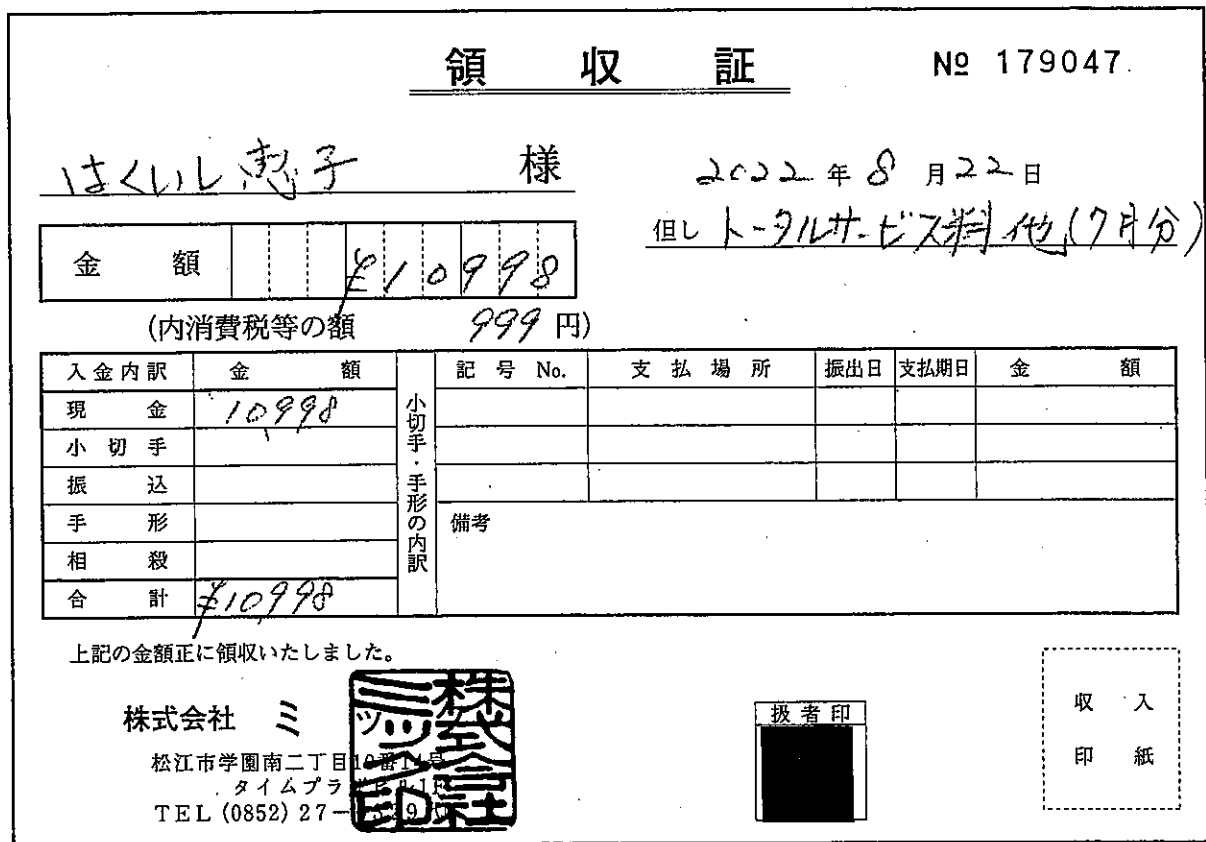 領収証
№ 179047
はくいし恵子 様
2022年8月22日
但し トータルサービス料他(7月分)
金額 ¥10998
(内消費税等の額 999円)
入金内訳 金額
現金 10,998
小切手
振込
手形
相殺
合計 ¥10,998
小切手・手形の内訳
記号No. 支払場所 振出日 支払期日 金額
備考
上記の金額正に領収いたしました。
株式会社 ミツ
松江市学園南二丁目
タイムプラ
TEL (0852) 27-
扱者印
収入
印紙